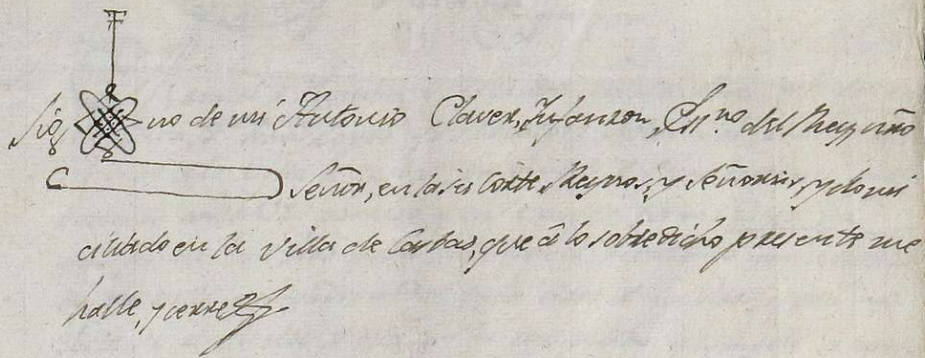 Sig no de mi Antonio Claver, Infanzon, Ess.no del Rey nro
Señor, en la su Corte, Reynos, y Señorios, y domi
ciliado en la villa de que â lo sobredicho presente me
halle, y cerre